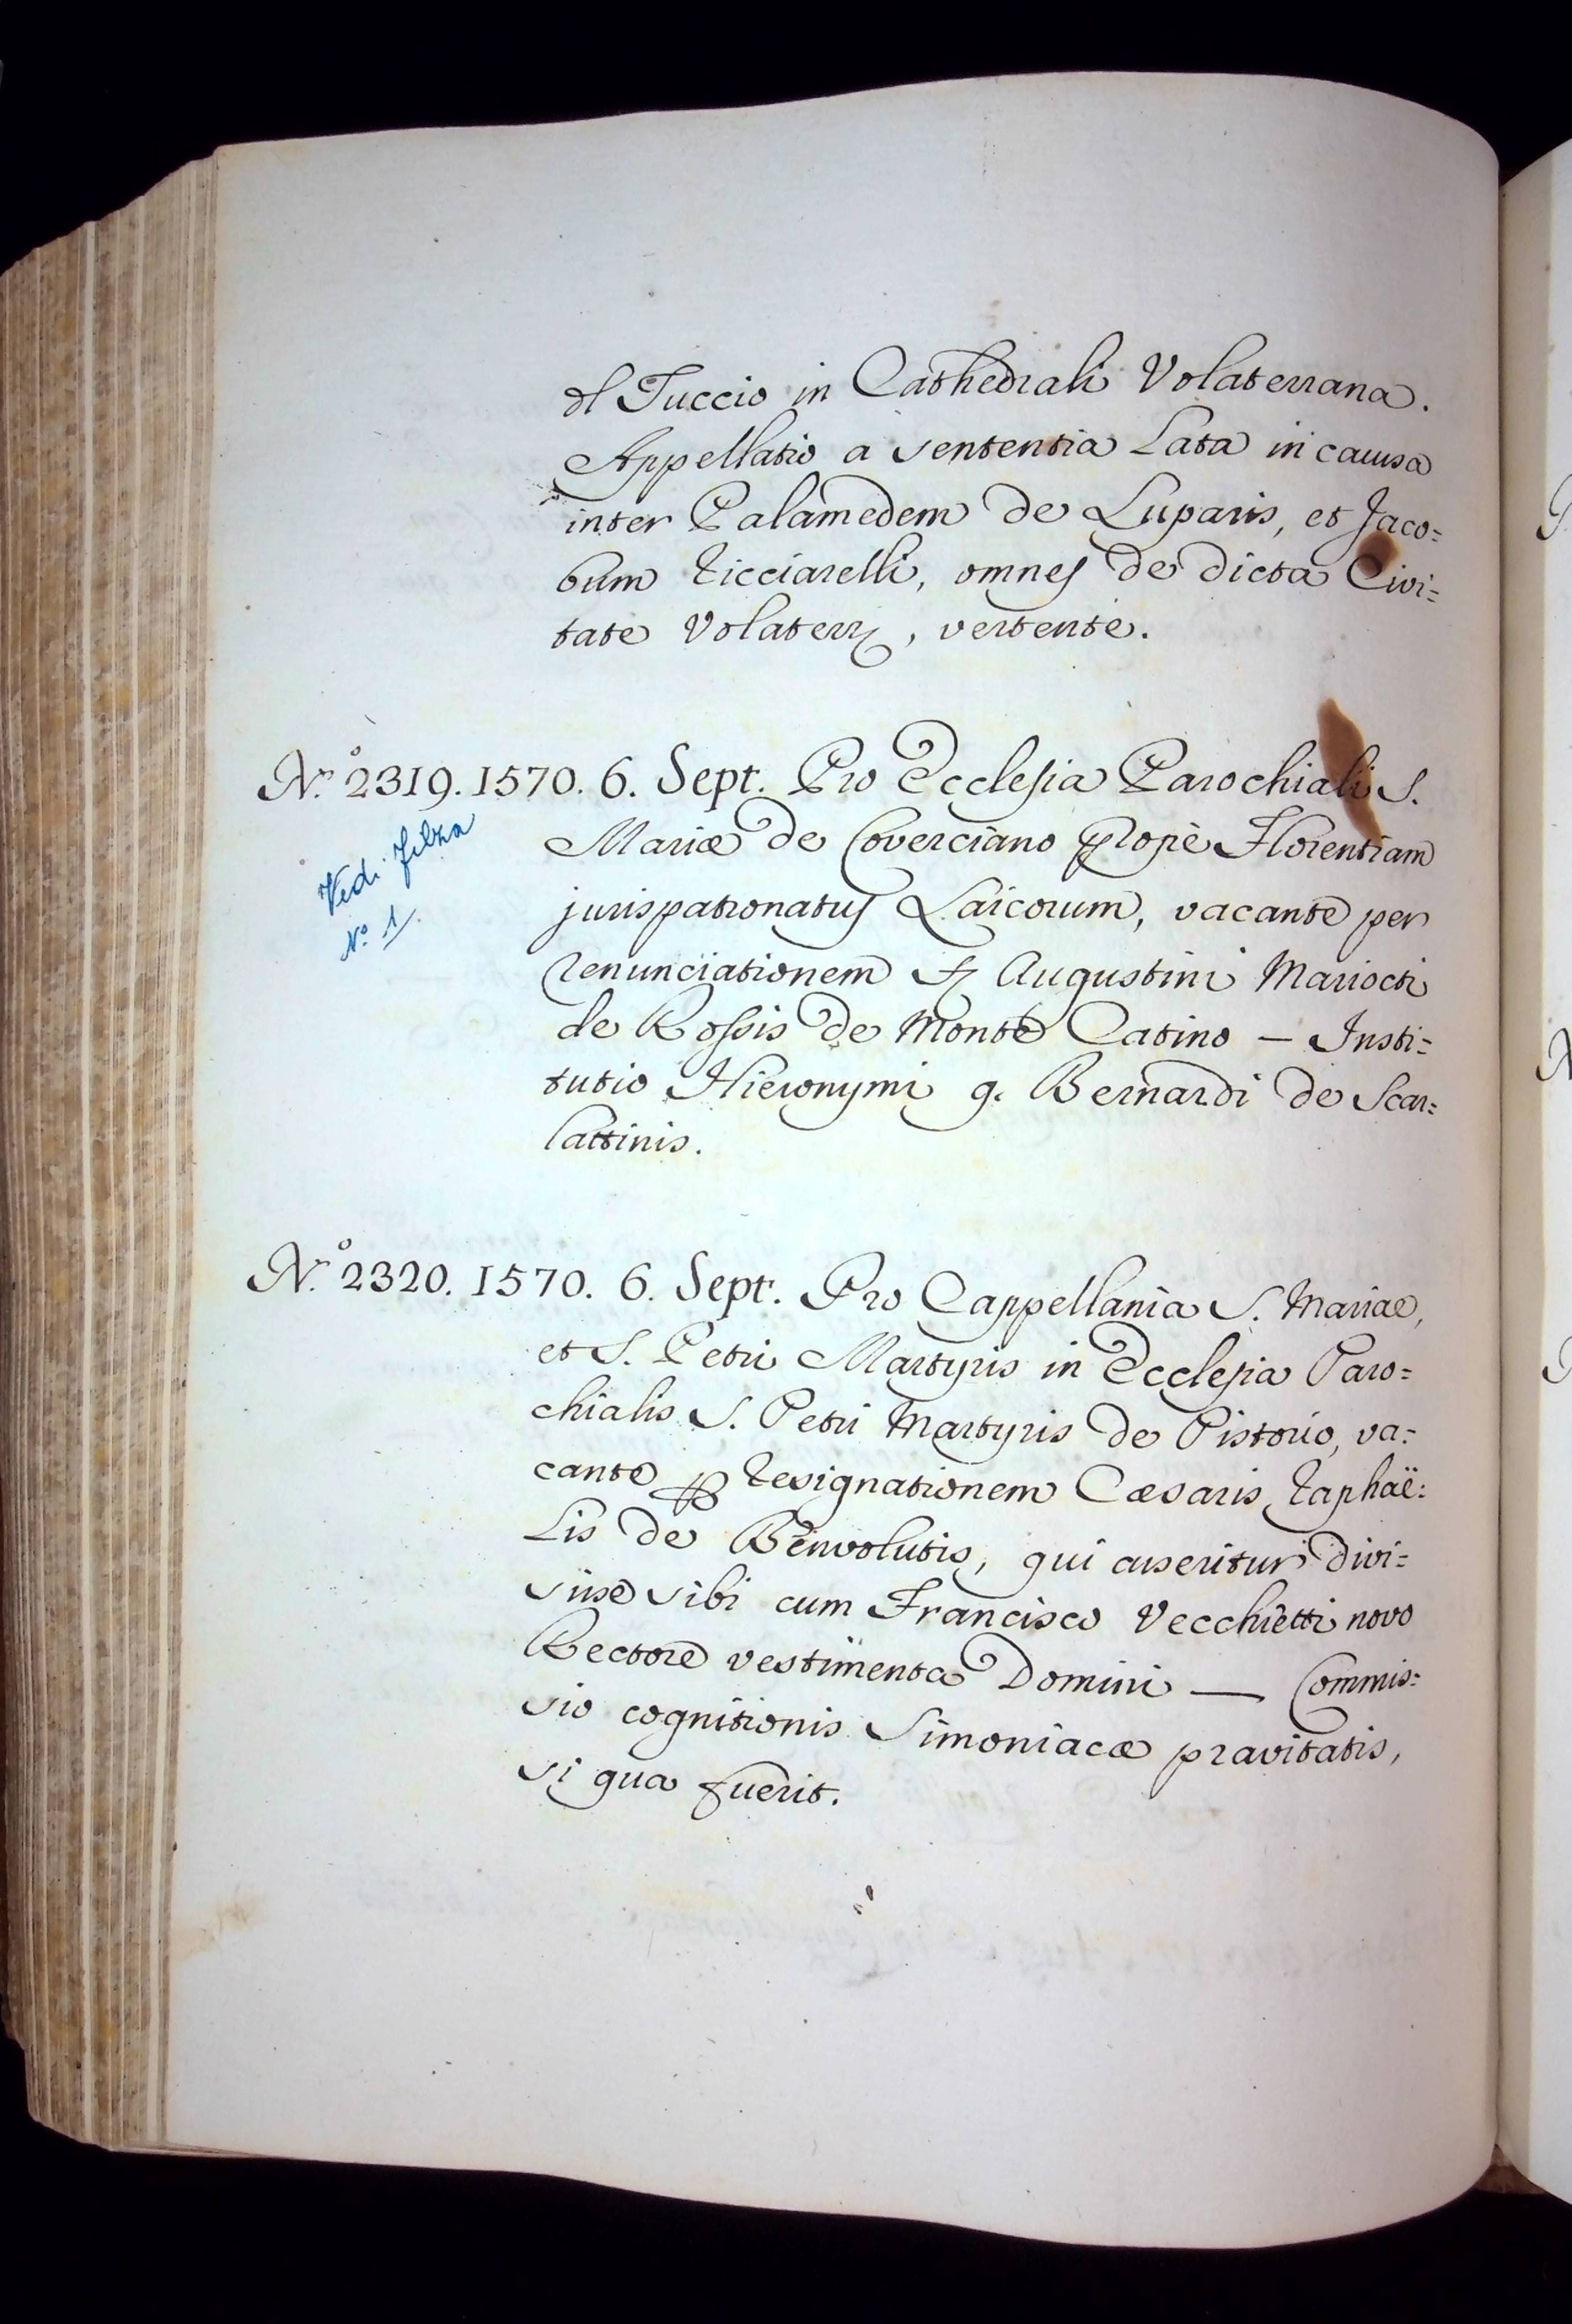 del Tuccio in Cathedrali Volaterrana.
Appellatio a sententia Lata in caussa
inter Palamedem de Luparis, et Jaco=
bum Ricciarelli, omnes de dicta Civi=
tate Volaterr, vertente.
N.º 2319. 1570. 6. Sept. Pro Ecclesia Parochiali S.
Mariæ de Coverciano prope Florentiam
jurispatronatus Laicorum, vacante per
renunciationem Augustini Mariocti
de Rossis de Monte Catino — Insti=
tutio Hieronymi q. Bernardi de Scar=
lattinis.
Vedi filza
Nº 1.
N.º 2320. 1570. 6. Sept. Pro Cappellania S. Mariae,
et S. Petri Martyris in Ecclesia Paro=
chialis S. Petri Martyris de Pistorio, va=
cante Resignationem Cæsaris Raphaë=
Lis de Benvolutis, qui asseritur divi=
sisse sibi cum Francisco Vecchietti novo
Rectore vestimenta Domini — Commis=
sio cognitionis Simoniacæ pravitatis,
si qua fuerit.